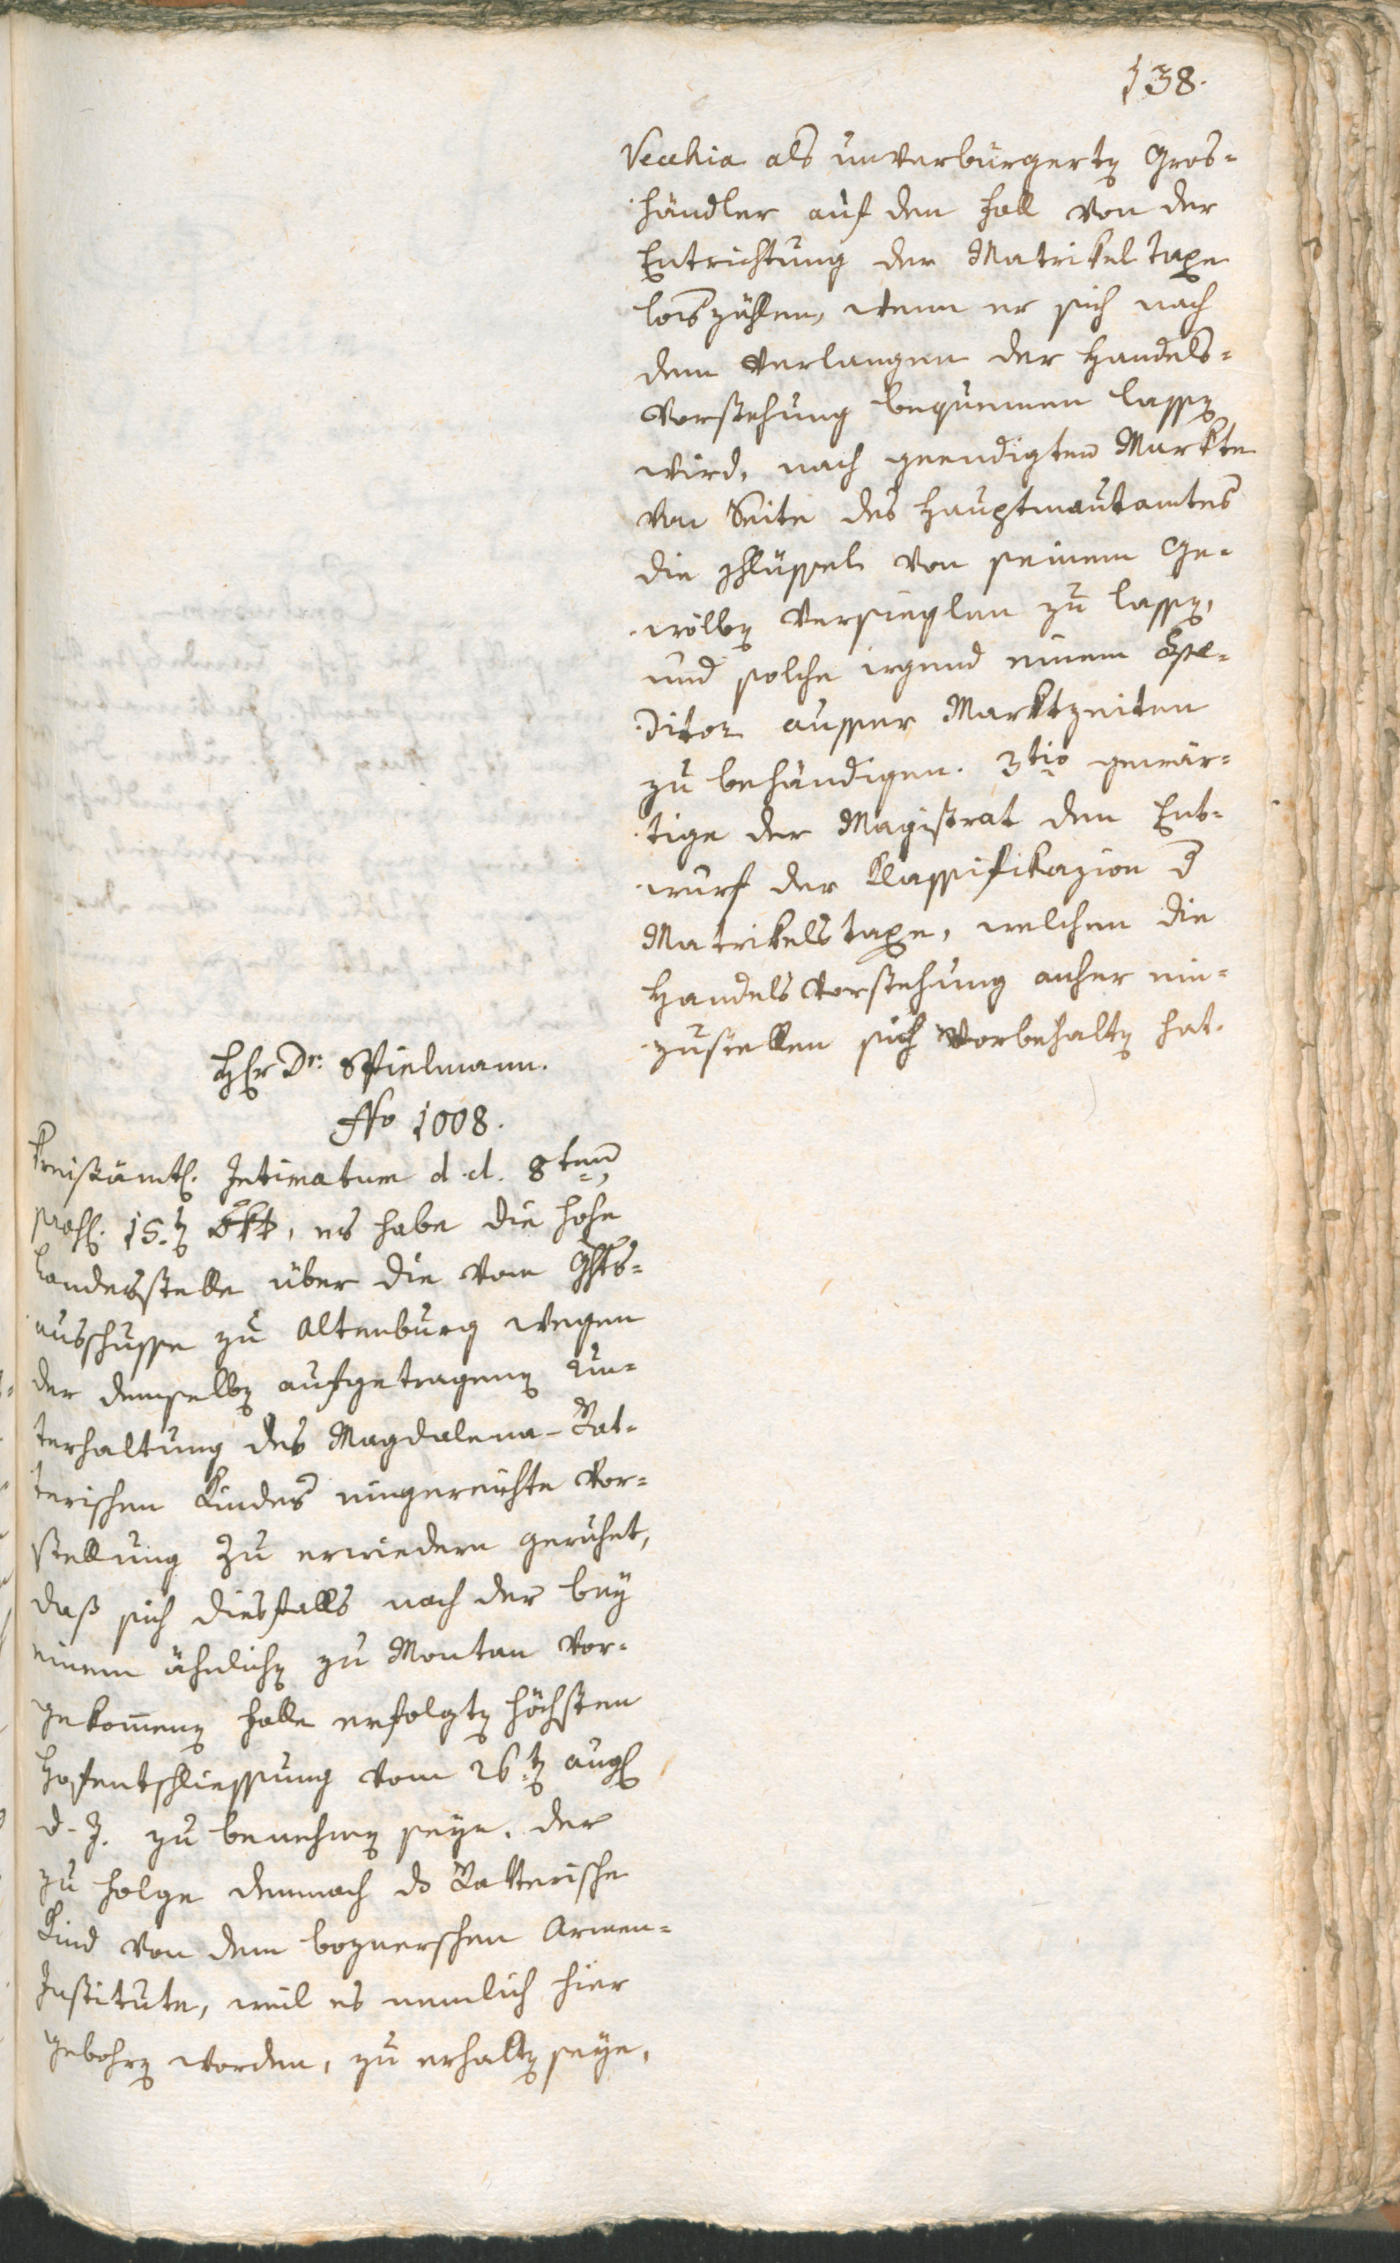 138.
Vecchia als unverbürgerten Gros=
händler auf den Fall von der
Entrichtung der Matrikel Taxe
loszählen, wenn er sich nach
dem Verlangen der Handels=
vorstehung bequemen lassen
wird, nach geendigten Markte
von Seite des Hauptmautamtes
die Schlüssel von seinem Ge=
wölben versieglen zu lassen,
und solche irgend einem Spe=
ditor ausser Marktzeiten
zu behändigen. 3tio gewär=
tige der Magistrat den Ent=
wurf der Klassifikazion d
Matrikelstaxe, welchen die
Handelsvorstehung anher ein=
zustellen sich vorbehalten hat.
HEr Dr. Spielmann.
No 1008.
Kreisämtl. Intimatum d.d. 8ten,
praes. 15.ten 8bb, es habe die hohe
Landesstelle über die vom Ghts=
ausschusse zu Altenburg wegen
der demselben aufgetragenen Un=
terhaltung des Magdalena-Rat=
terischen Kindes eingereichte Vor=
stellung zu erwiedern geruhet,
daß sich diesfalls nach der bey
einem ähnlichen zu Montan vor=
gekommenen Falle erfolgten höchsten
Hofentschliessung vom 26.ten aug
d. J. zu benehmen seye. der
zu Folge demnach ds Ratterische
Kind von dem boznerschen Armen=
Institute, weil es nemlich hier
gebohren worden, zu erhalten seye,